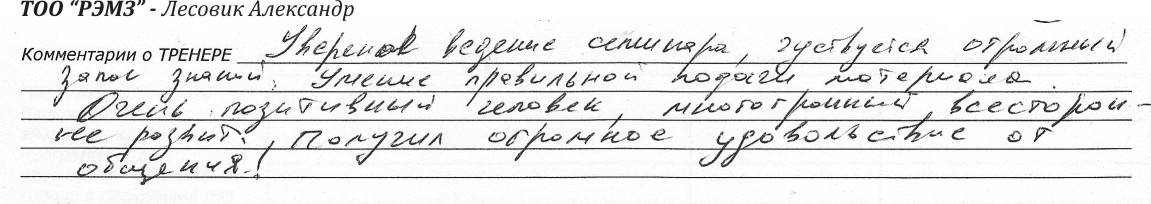 ТОО “РЭМЗ” - Лесовик Александр
Комментарии о ТРЕНЕРЕ Уверенное ведение семинара, чуствуется огромный
запас знаний. Умение правильной подачи материала
Очень позитивный человек, многогранный, всесторон-
не развит., Получил огромное удовольствие от
общения!